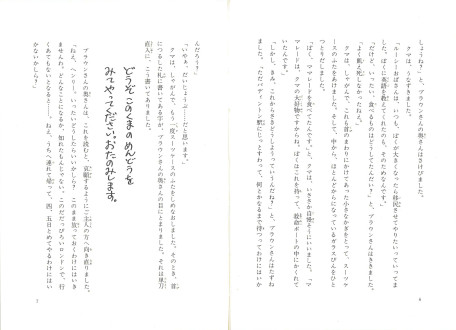 しょうね？」と、ブラウンさんの奥さんはさけびました。
クマは、うなずきました。
「ルーシーおばさんは、いつも、ぼくが大きくなったら移民させてやりたいっていってま
した。ぼくに英語を教えてくれたのも、そのためなんです。」
「だけど、いったい、食べるものはどうしてたんだい？」と、ブラウンさんはききました。
「よく飢え死しなかったねえ。」
クマは、しゃがんで、これも首のまわりにかけてあった小さなかぎをとって、スーツケ
ースのふたをあけました。そして、中から、ほとんどからになっているガラスびんをひと
つとりだしました。
「ぼく、マーマレードを食べてたんです。」と、クマは、いささか自慢そうにいいました。「マ
マレードは、クマの大好物ですからね。ぼくはこれを持って、救命ボートの中にかくれて
いたんです。」
「しかし、きみ、これからさきどうしようっていうんだね？」と、ブラウンさんはたずね
ました。「ただパディントン駅にじっとすわって、何とかなるまで待つってわけにはいか
8
んだろう？」
「いやぁ、だいじょうぶ……と思います。」
クマは、しゃがんで、もう一度スーツケースのふたをしめなおしました。そのとき、首
につるした札に書いてある字が、ブラウンさんの奥さんの目にとまりました。それは単刀
直入に、こう書いてありました。
どうぞ このくまの めんどうを
みてやってください。おたのみします。
ブラウンさんの奥さんは、これを読むと、哀願するようにご主人の方へ向き直りました。
「ねえ、ヘンリー、いったいどうしたらいいかしら？このまま放っておくわけにはいき
ませんわ。どんなことになるか、知れたもんじゃない。このだだっぴろいロンドンで、行
くあてもないとなると……。ねえ、うちへ連れて帰って、四、五日とめてやるわけにはい
かないかしら？」
7